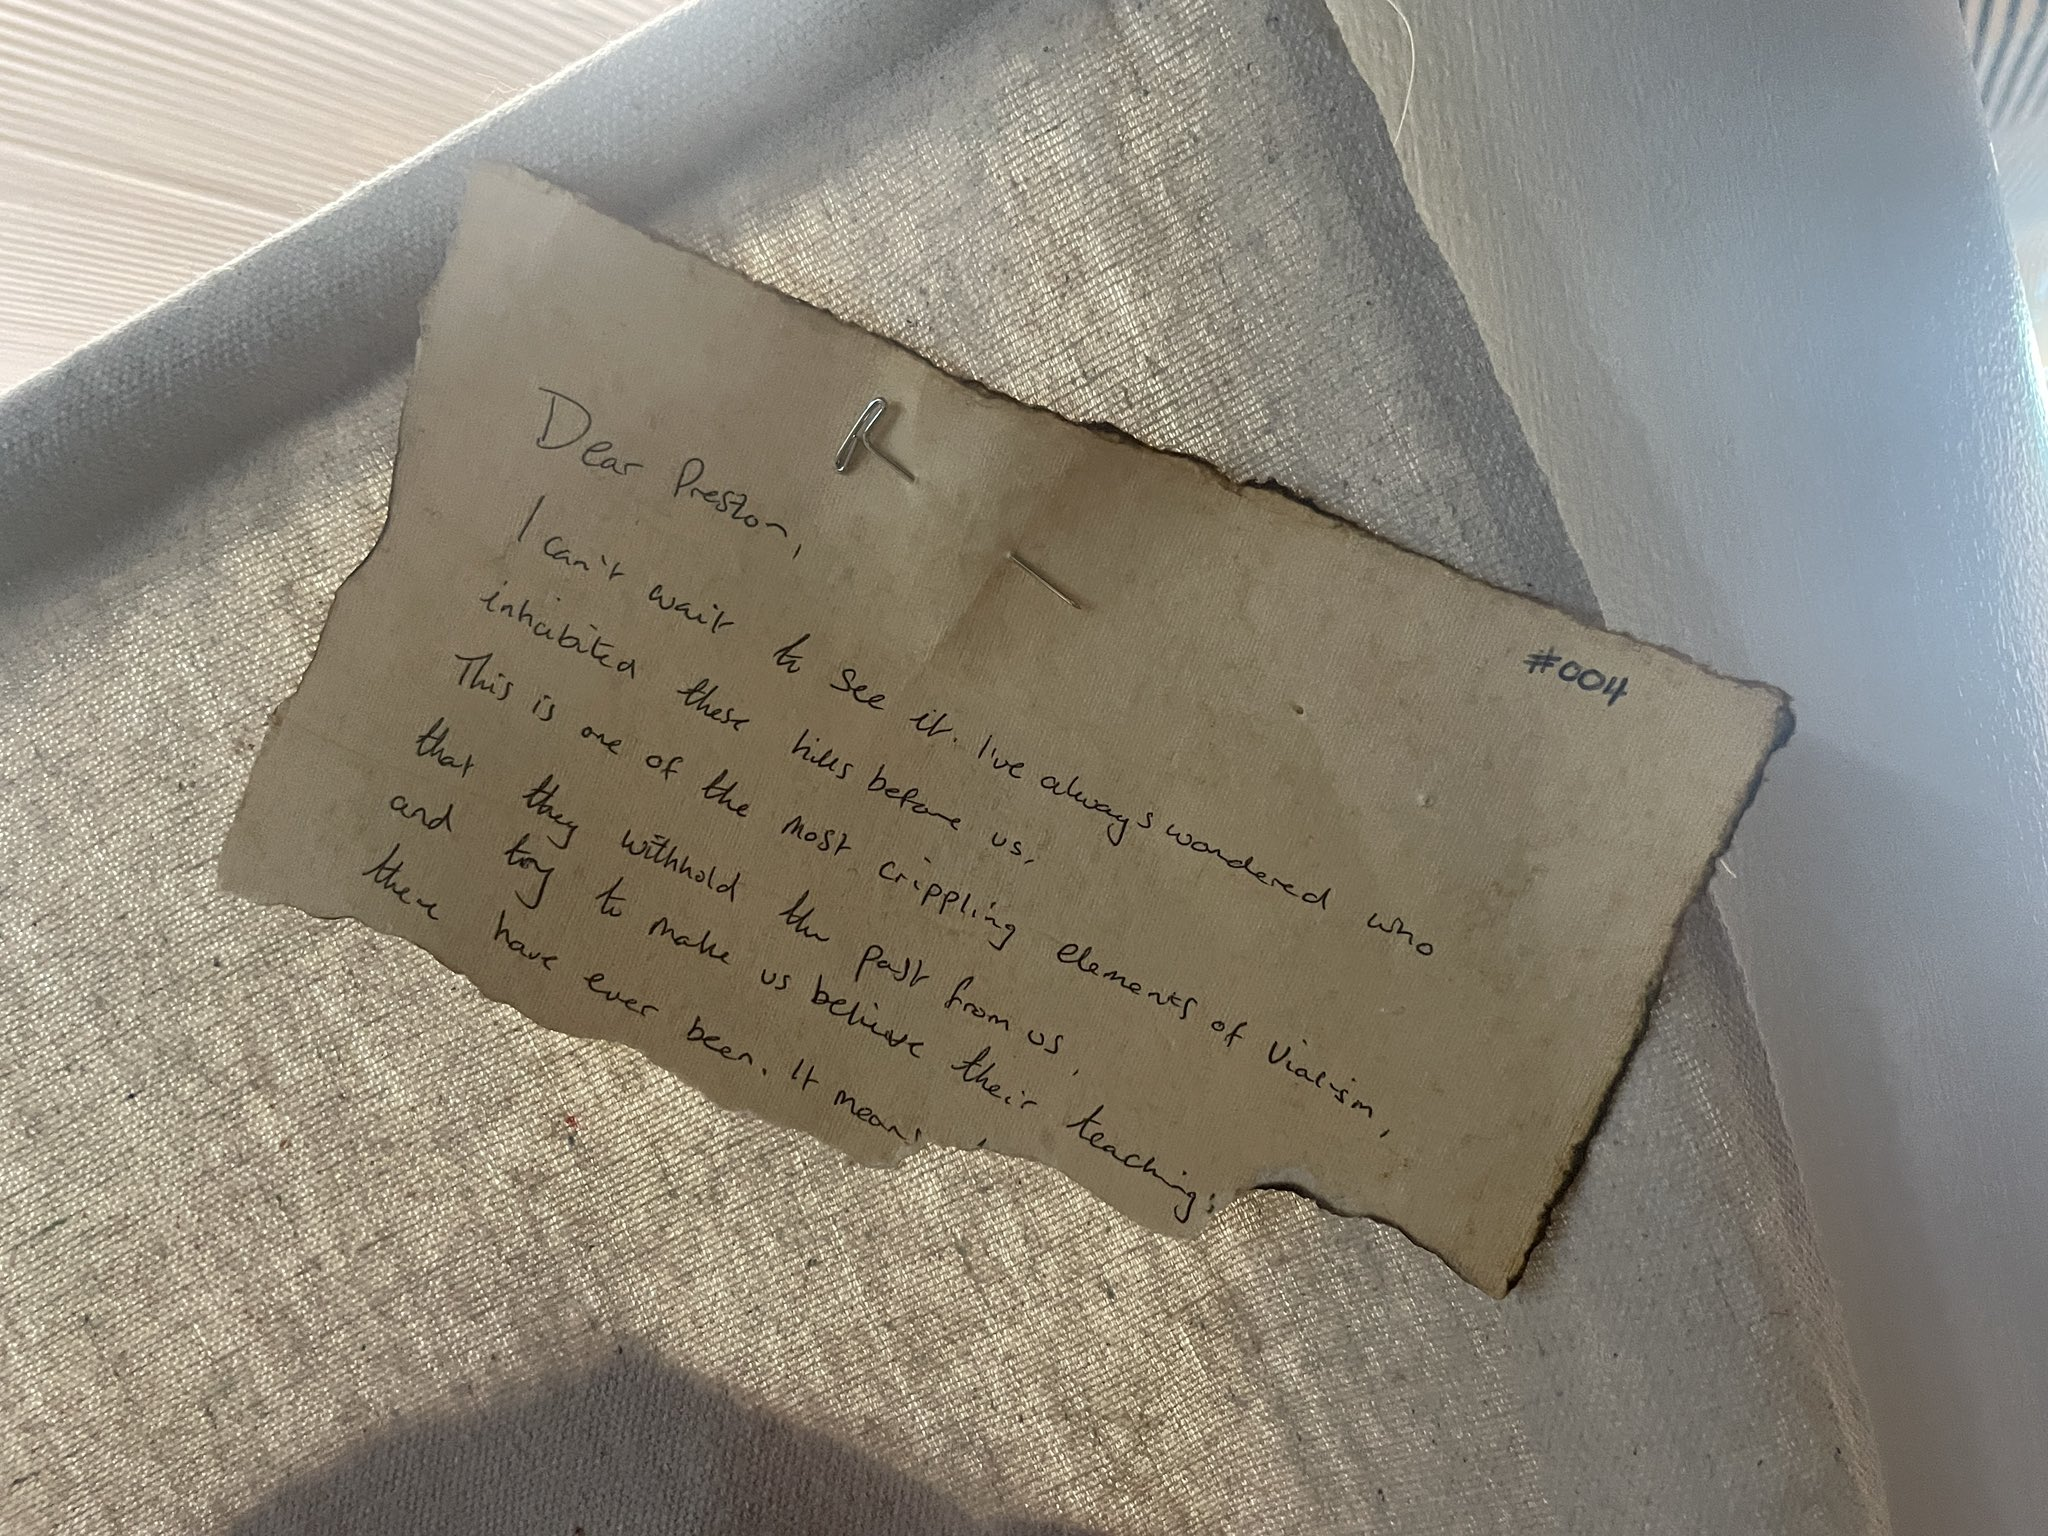 #004
Dear Preston,
I can't wait to see it. I've always wondered who
inhabited these hills before us.
This is one of the most crippling elements of Vialism,
that they withhold the past from us,
and try to make us believe their teaching,
there have ever been. It means